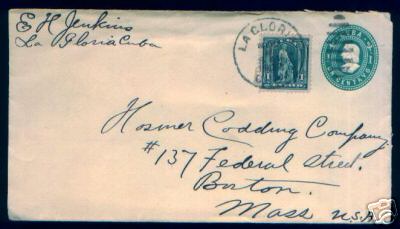 E H Jenkins
La Gloria Cuba
LA GLORI
1
CUBA
1 1
UN CENTAVO
Hosmer Codding Company,
#137 Federal Street.
Boston.
Mass U.S.A.